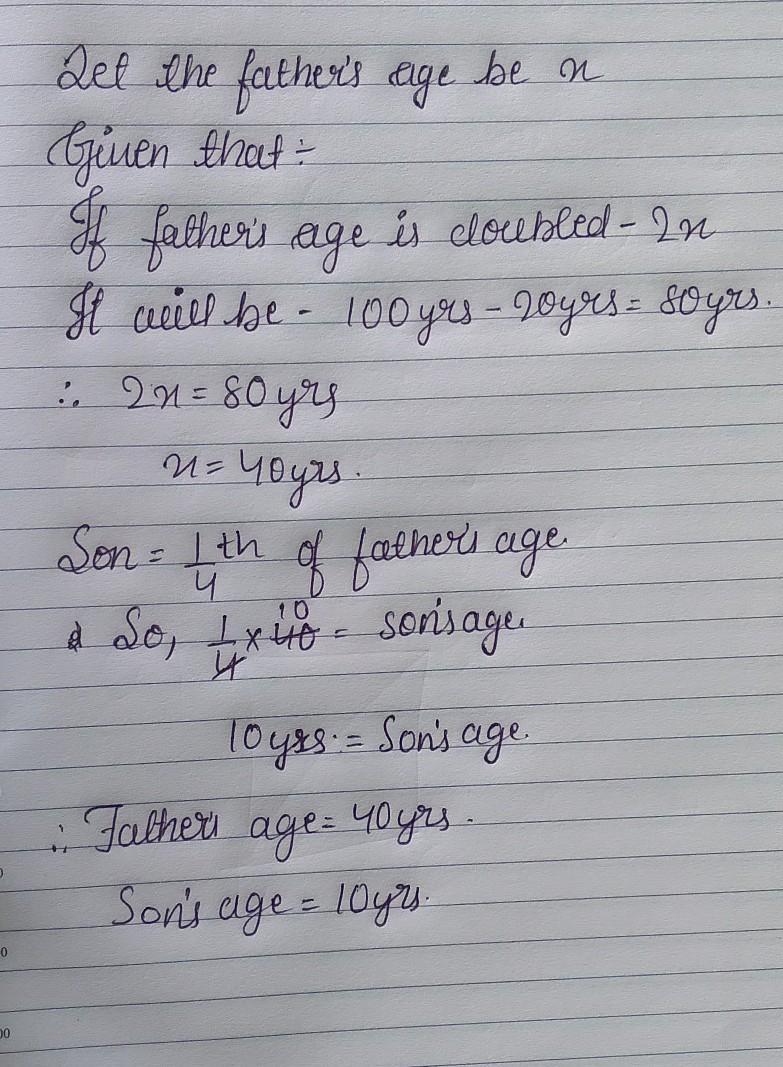 Let the father's age be x
Given that:-
If father's age is doubled - 2x
It will be - 100yrs - 20yrs = 80yrs.
∴ 2x = 80yrs
x = 40yrs.
Son = 1/4 th of father's age.
So, 1/4 × 40 10 = son's age.
10yrs. = Son's age.
∴ Father's age = 40yrs.
Son's age = 10yrs.